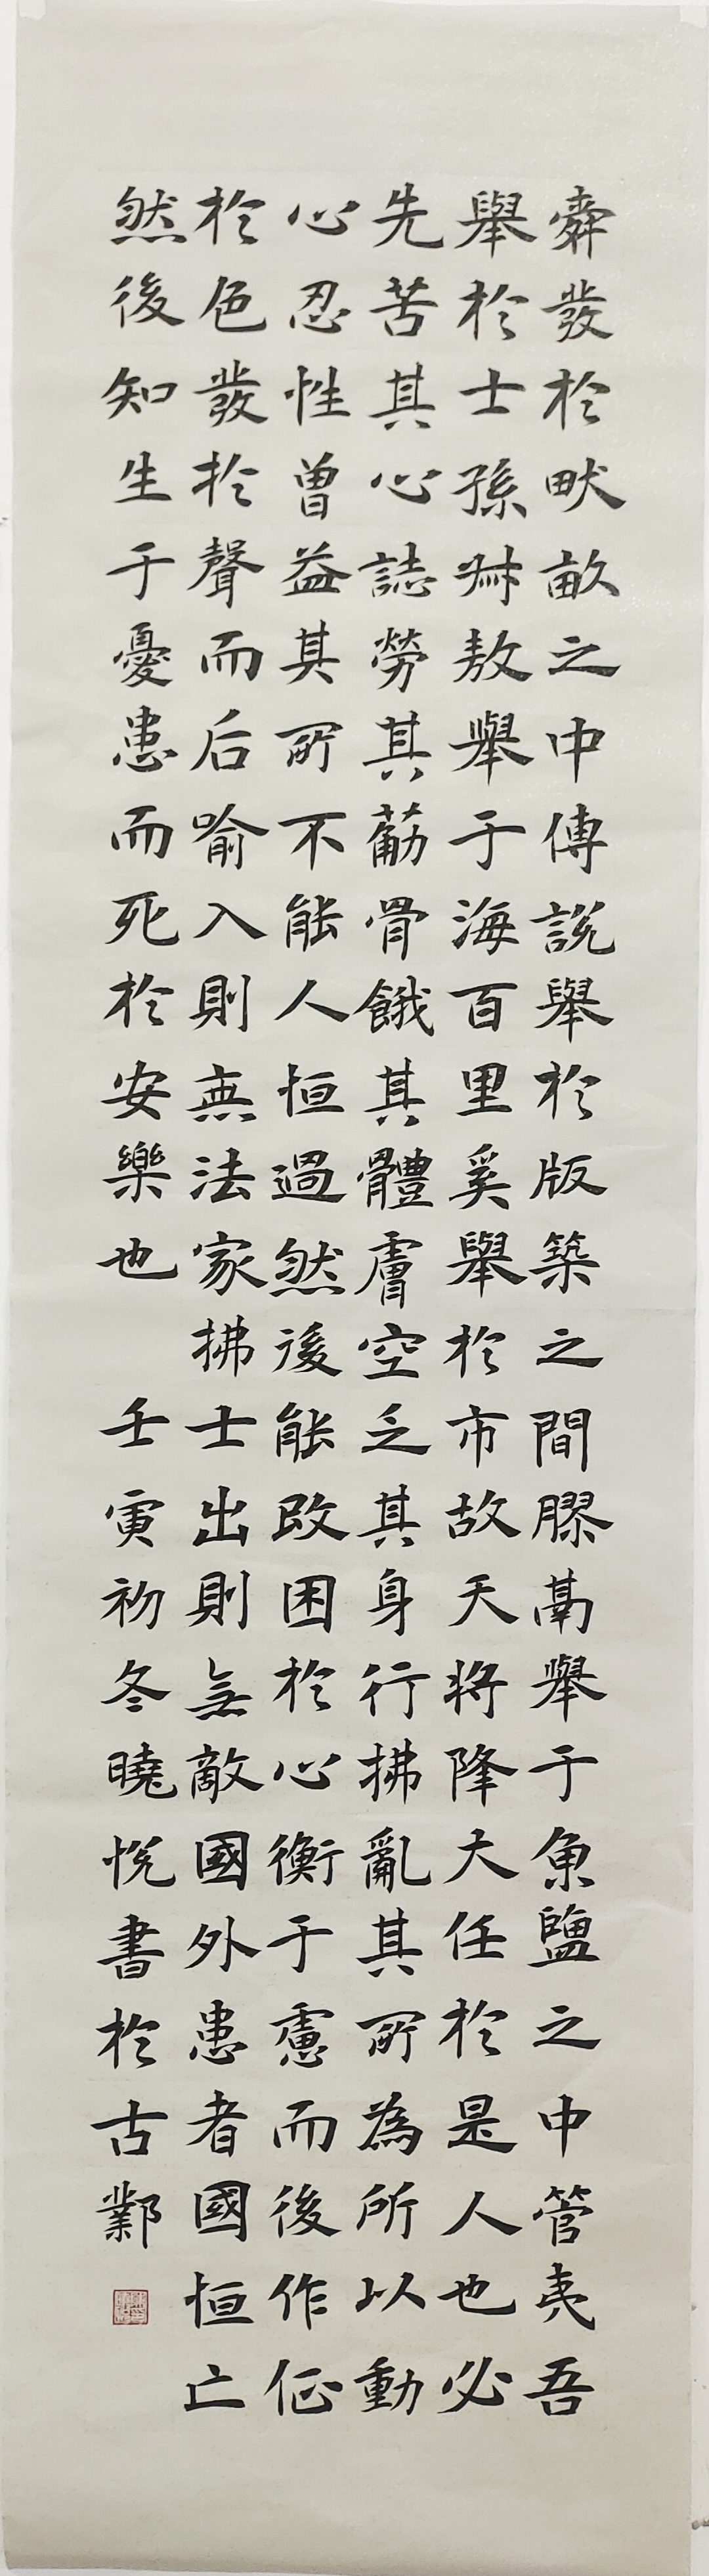 舜發於畎畝之中傅說舉於版築之間膠鬲舉于魚鹽之中管夷吾
舉於士孫叔敖舉于海百里奚舉於市故天將降大任於是人也必
先苦其心誌勞其筋骨餓其體膚空乏其身行拂亂其所為所以動
心忍性曾益其所不能人恒過然後能改困於心衡于慮而後作征
於色發於聲而后喻入則無法家拂士出則無敵國外患者國恒亡
然後知生于憂患而死於安樂也
壬寅初冬曉悅書於古鄴